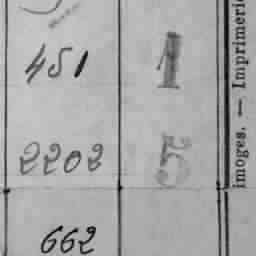 451 1
2202 5
662
imoges. — Imprimerie